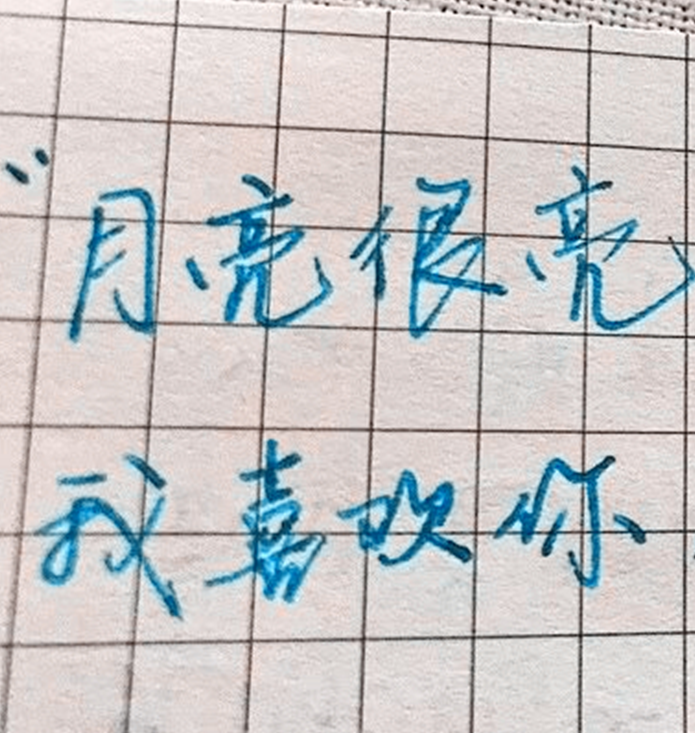 “月亮很亮
我喜欢你